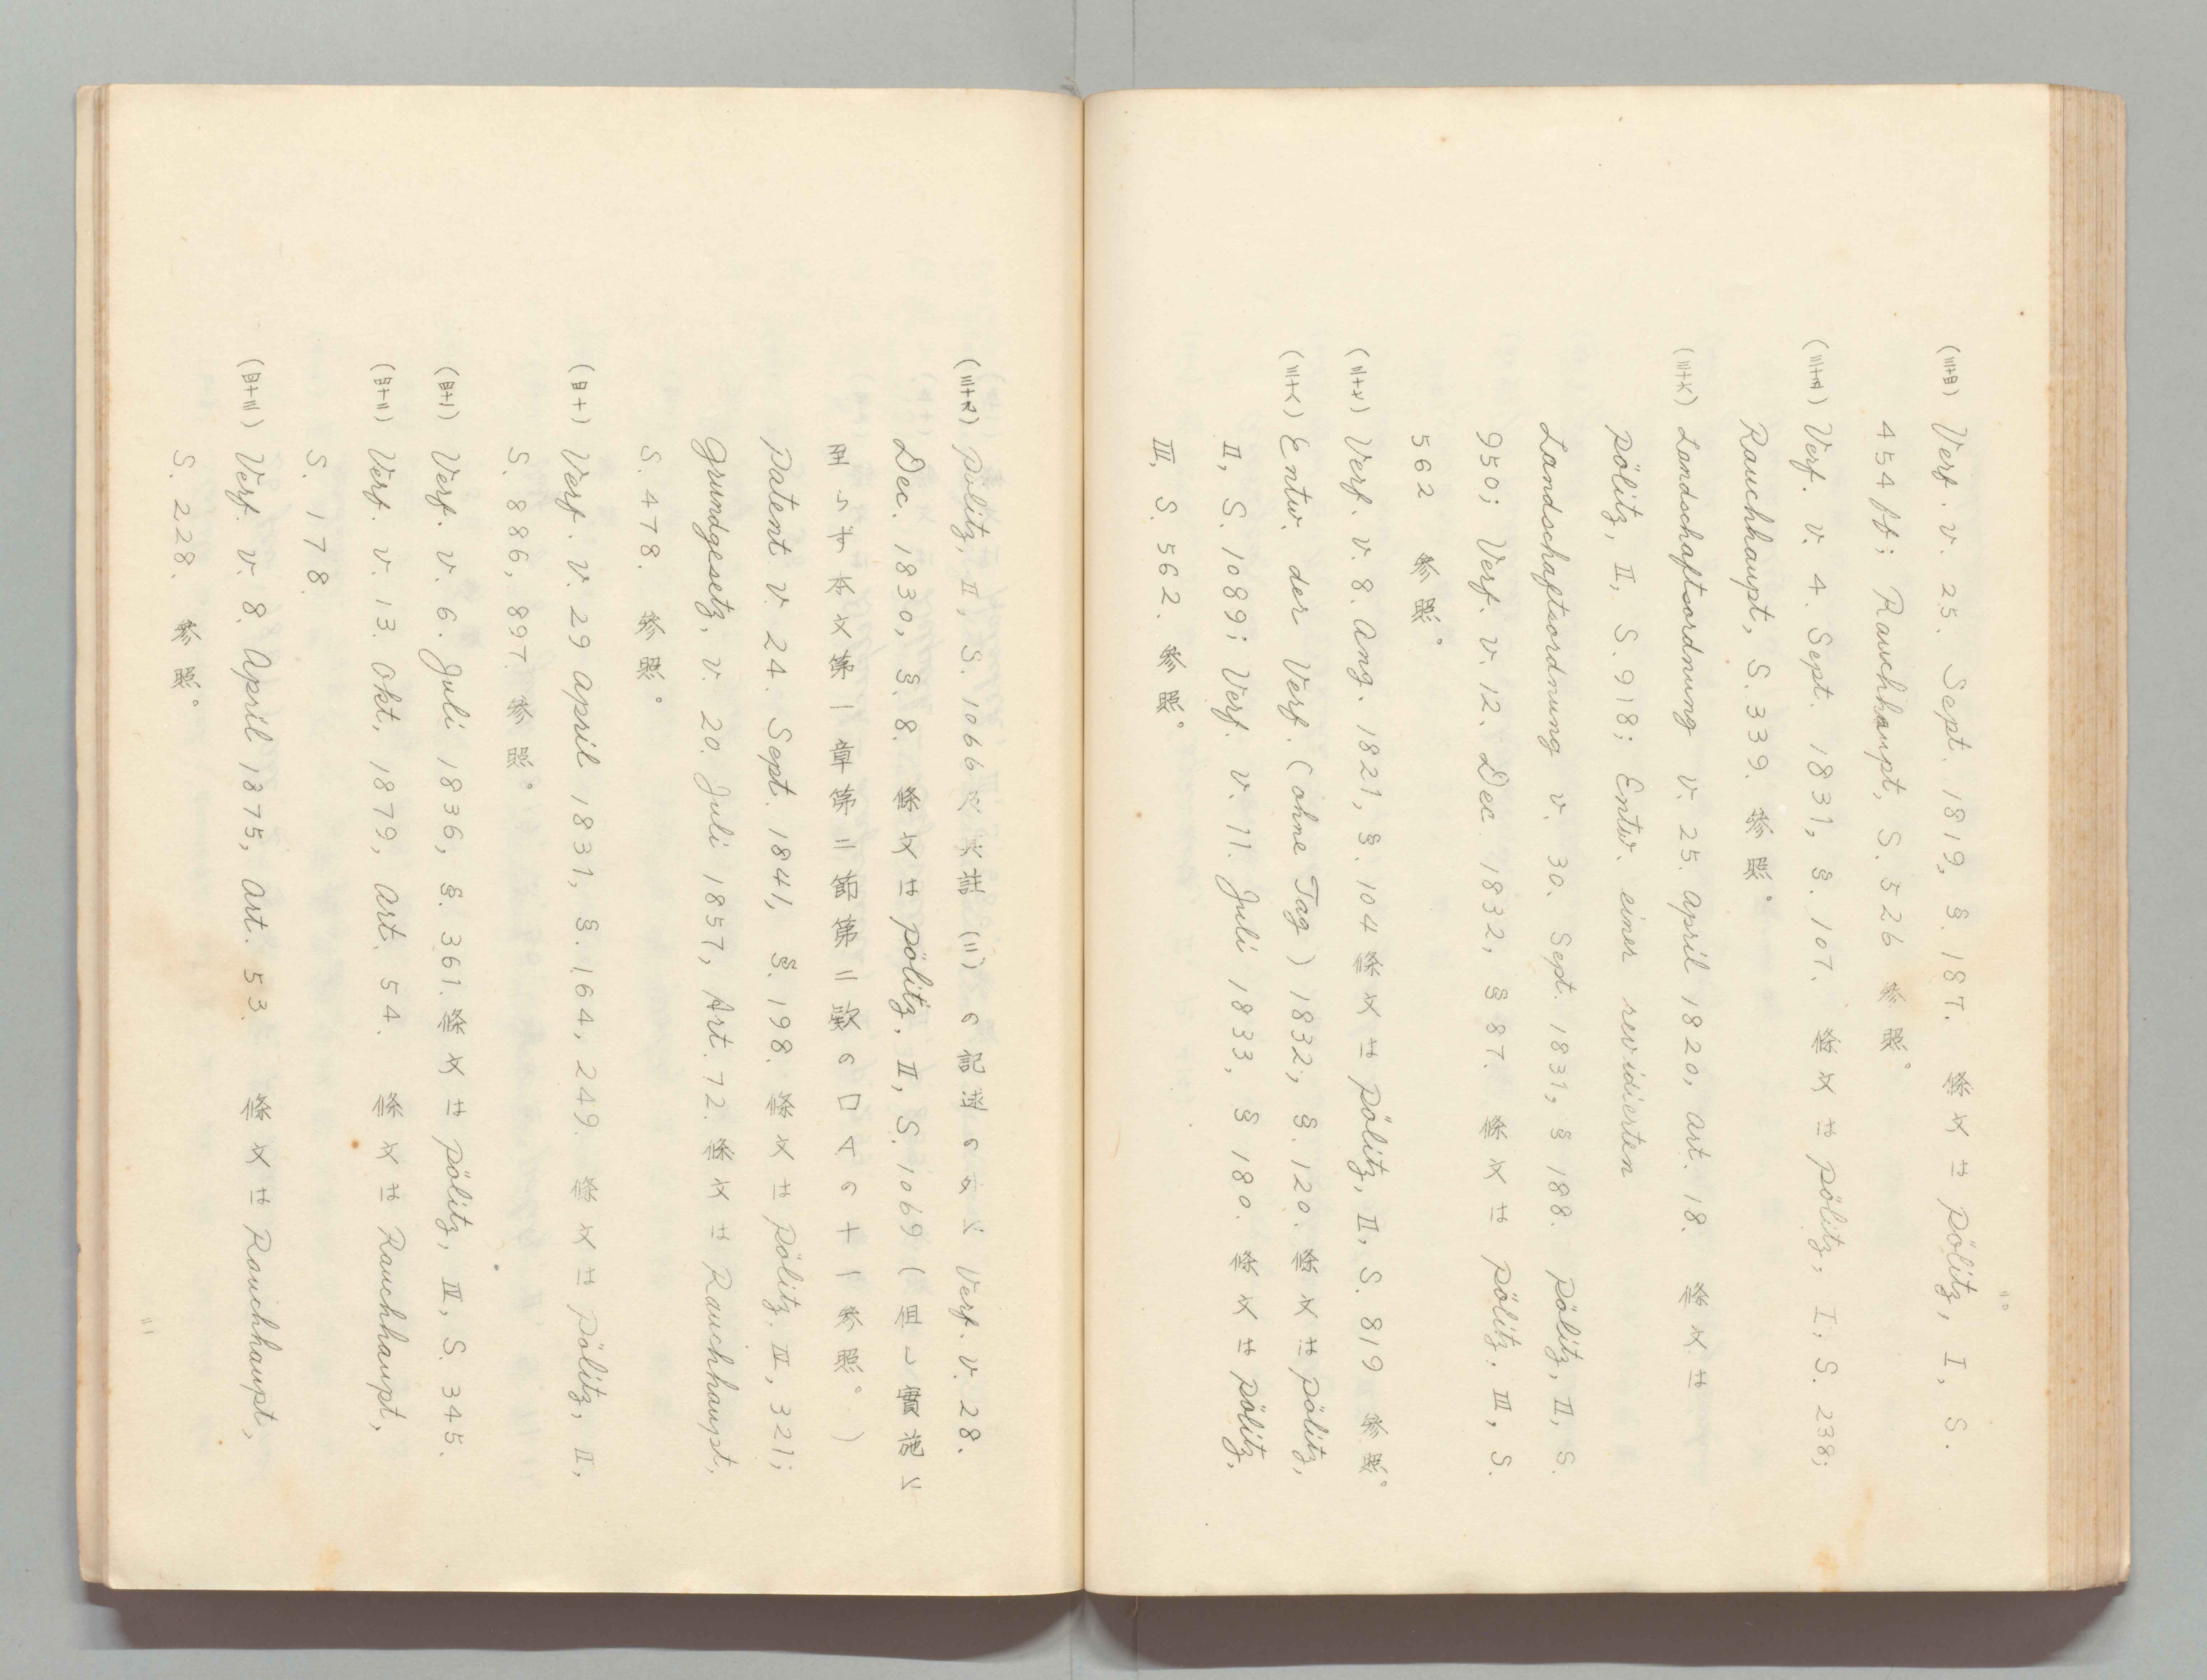 (三十四) Verf. v. 25. Sept. 1819, §. 187. 條文は Pölitz, I, S.
454 ff; Rauchhaupt, S. 526 參照。
(三十五) Verf. v. 4. Sept. 1831, §. 107. 條文は Pölitz, I, S. 238;
Rauchhaupt, S. 339. 參照。
(三十六) Landschaftsordnung v. 25. April 1820, Art. 18. 條文は
Pölitz, II, S. 918; Entw. einer revidierten
Landschaftsordnung v. 30. Sept. 1831, § 188. Pölitz, II, S.
950; Verf. v. 12. Dec. 1832, § 87. 條文は Pölitz, III, S.
562 參照。
(三十七) Verf. v. 8. Aug. 1821, §. 104 條文は Pölitz, II, S. 819 參照。
(三十八) Entw. der Verf. (ohne Tag) 1832, §. 120. 條文は Pölitz,
II, S. 1089; Verf. v. 11. Juli 1833, § 180. 條文は Pölitz,
III, S. 562. 參照。
二〇
(三十九) Pölitz, II, S. 1066 及其註(二)の記述の外に Verf. v. 28.
Dec. 1830, §. 8. 條文は Pölitz, II, S. 1069 (但し實施に
至らず本文第一章第二節第二款のロAの十一參照。)
Patent v. 24. Sept. 1841, §. 198. 條文は Pölitz, IV, 321;
Grundgesetz, v. 20. Juli 1857, Art. 72. 條文は Rauchhaupt,
S. 478. 參照。
(四十) Verf. v. 29 April 1831, §. 164, 249. 條文は Pölitz, II,
S. 886, 897. 參照。
(四十一) Verf. v. 6. Juli 1836, §. 361. 條文は Pölitz, IV, S. 345.
(四十二) Verf. v. 13. Okt. 1879, Art. 54. 條文は Rauchhaupt,
S. 178.
(四十三) Verf. v. 8. April 1875, Art. 53. 條文は Rauchhaupt,
S. 228. 參照。
二一